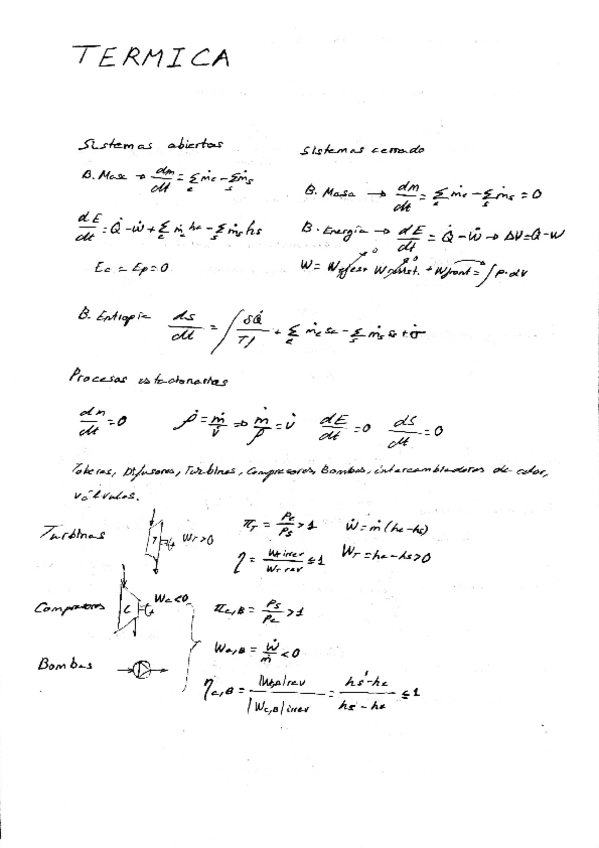 TERMICA
Sistemas abiertos
B. Masa → dm/dt = Σ_e ṁe - Σ_s ṁs
dE/dt = Q̇ - Ẇ + Σ_e ṁe he - Σ_s ṁs hs
Ec = Ep = 0
Sistemas cerrado
B. Masa → dm/dt = Σ_e ṁe - Σ_s ṁs = 0
B. Energía → dE/dt = Q̇ - Ẇ → ΔU = Q - W
= ∫ P·dV
B. Entropia dS/dt = ∫ δQ̇/Tf + Σ_e ṁe se - Σ_s ṁs ss + σ̇
Procesos estacionarios
dm/dt = 0 ρ̇ = ṁ/v̇ ⇒ ṁ/ρ = v̇ dE/dt = 0 dS/dt = 0
Toberas, Difusores, Turbinas, Compresores, Bombas, intercambiadores de calor,
válvulas.
Turbinas T WT > 0 πT = Pe/Ps > 1 Ẇ = ṁ(he - hs)
η = WT irrev/WT rev ≤ 1 WT = he - hs > 0
Compresores C Wc < 0 πc,B = Ps/Pe > 1
Wc,B = Ẇ/ṁ < 0
Bombas
ηc,B = |Wc,B| rev/|Wc,B| irrev = hs' - he/hs - he ≤ 1